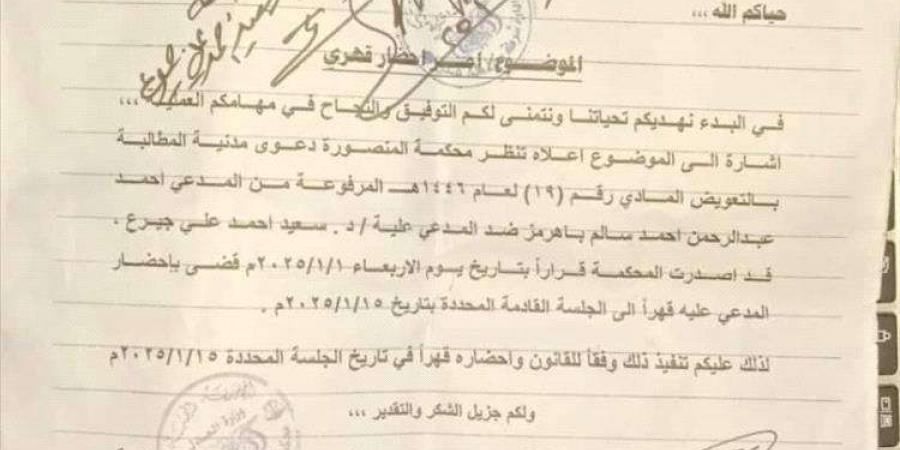 حياكم الله ,,,
الموضوع/ أمر احضار قهري
في البدء نهديكم تحياتنا ونتمنى لكم التوفيق والنجاح في مهامكم العملية ,,,
اشارة الى الموضوع اعلاه تنظر محكمة المنصورة دعوى مدنية المطالبة
بالتعويض المادي رقم (١٩) لعام ١٤٤٦هـ المرفوعة من المدعي احمد
عبدالرحمن احمد سالم باهرمز ضد المدعي علية / د . سعيد احمد علي جيرع .
قد اصدرت المحكمة قراراً بتاريخ يوم الاربعاء ٢٠٢٥/١/١م قضى بإحضار
المدعي عليه قهراً الى الجلسة القادمة المحددة بتاريخ ٢٠٢٥/١/١٥م .
لذلك عليكم تنفيذ ذلك وفقاً للقانون واحضاره قهراً في تاريخ الجلسة المحددة ٢٠٢٥/١/١٥م
ولكم جزيل الشكر والتقدير ,,,